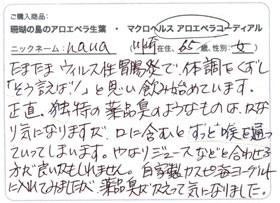 ご購入商品:
珊瑚の島のアロエベラ生葉 ・ マクロヘルス アロエベラコーディアル
ニックネーム: nana 在住、65歳、性別: 女
たまたまウィルス性胃腸炎で、体調をくずし
「そう言えば!」と思い飲み始めています。
正直、独特の薬品臭のようなものは、かな
り気になりますが、口に含むと すっと喉を通っ
ていってしまいます。やはりジュースなどと合わせる
方が良いかもしれません。自家製カスピ海ヨーグルト
に入れてみましたが 薬品臭がかえって気になりました。